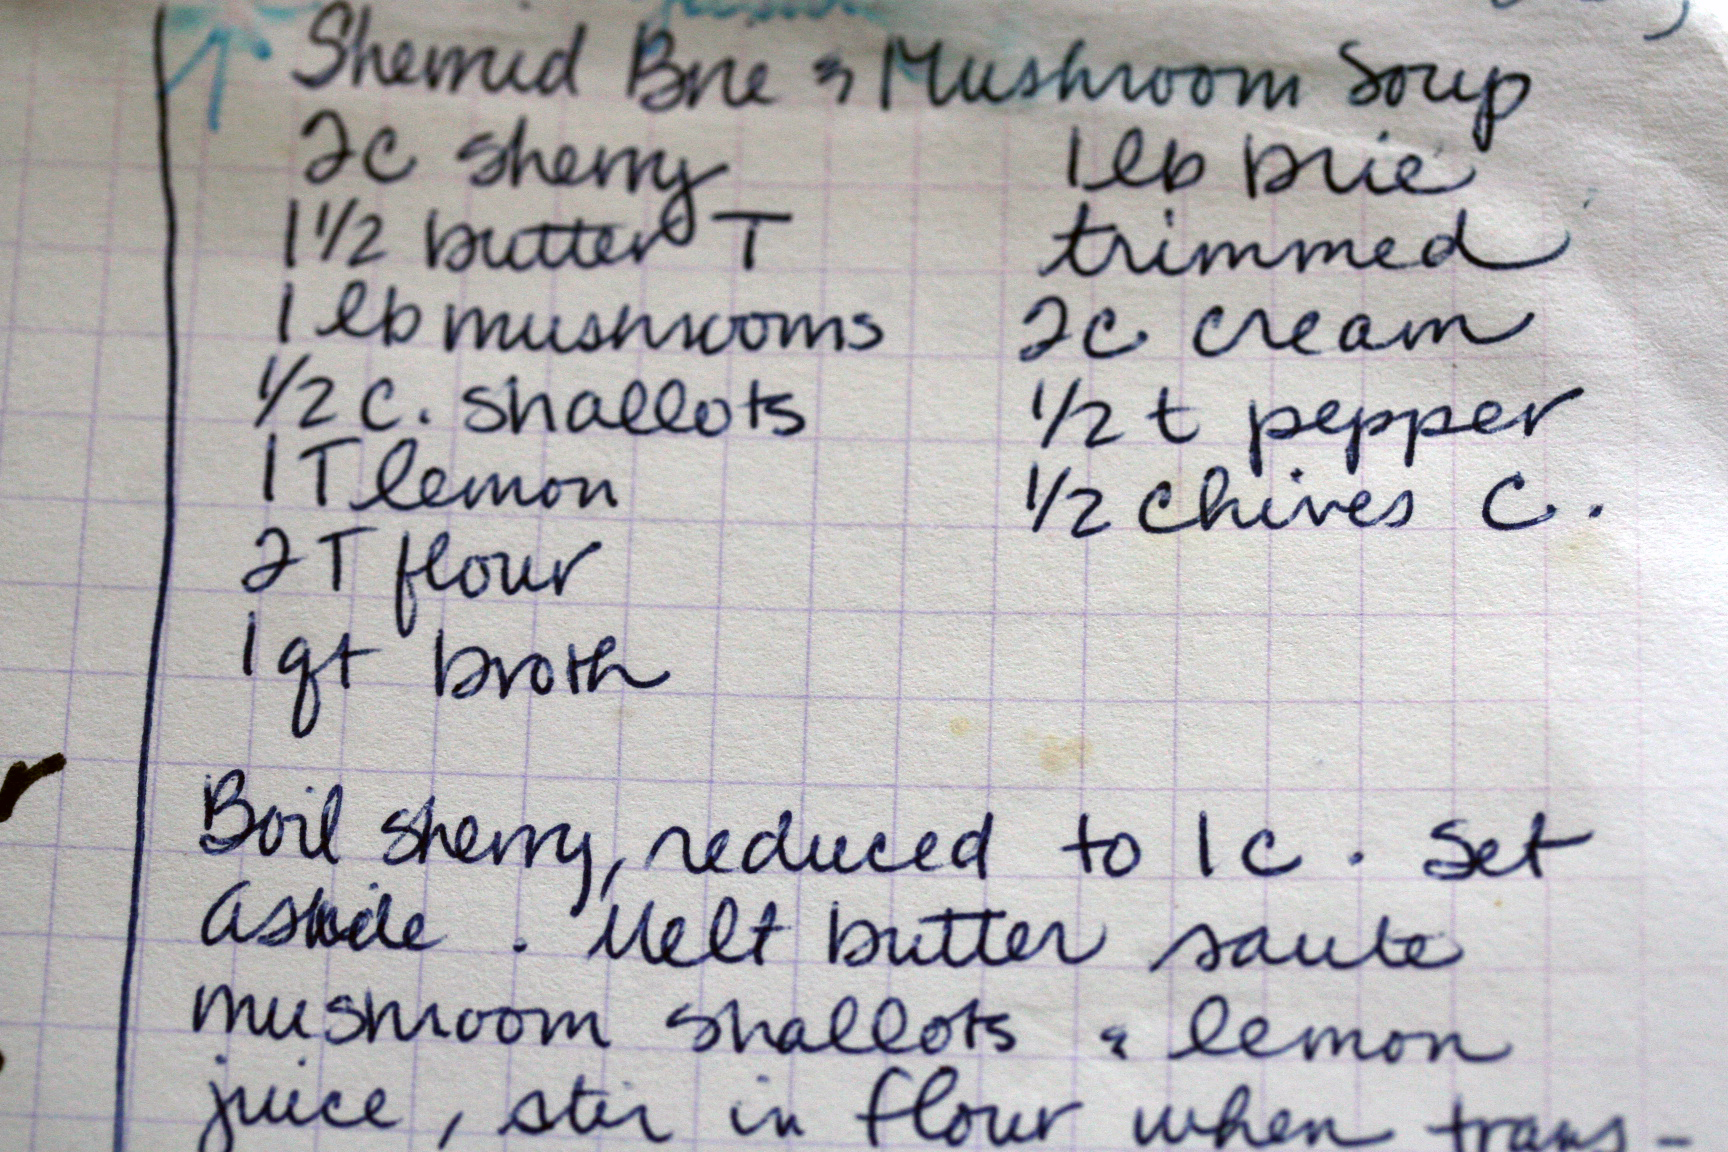 Sherried Brie & Mushroom Soup
2c sherry
1 1/2 butter T
1 lb mushrooms
1/2 c. shallots
1 T lemon
2 T flour
1 qt broth
1 lb brie
trimmed
2c. cream
1/2 t pepper
1/2 chives c.
Boil sherry, reduced to 1 c. Set
aside. Melt butter saute
mushroom shallots & lemon
juice, stir in flour when trans-